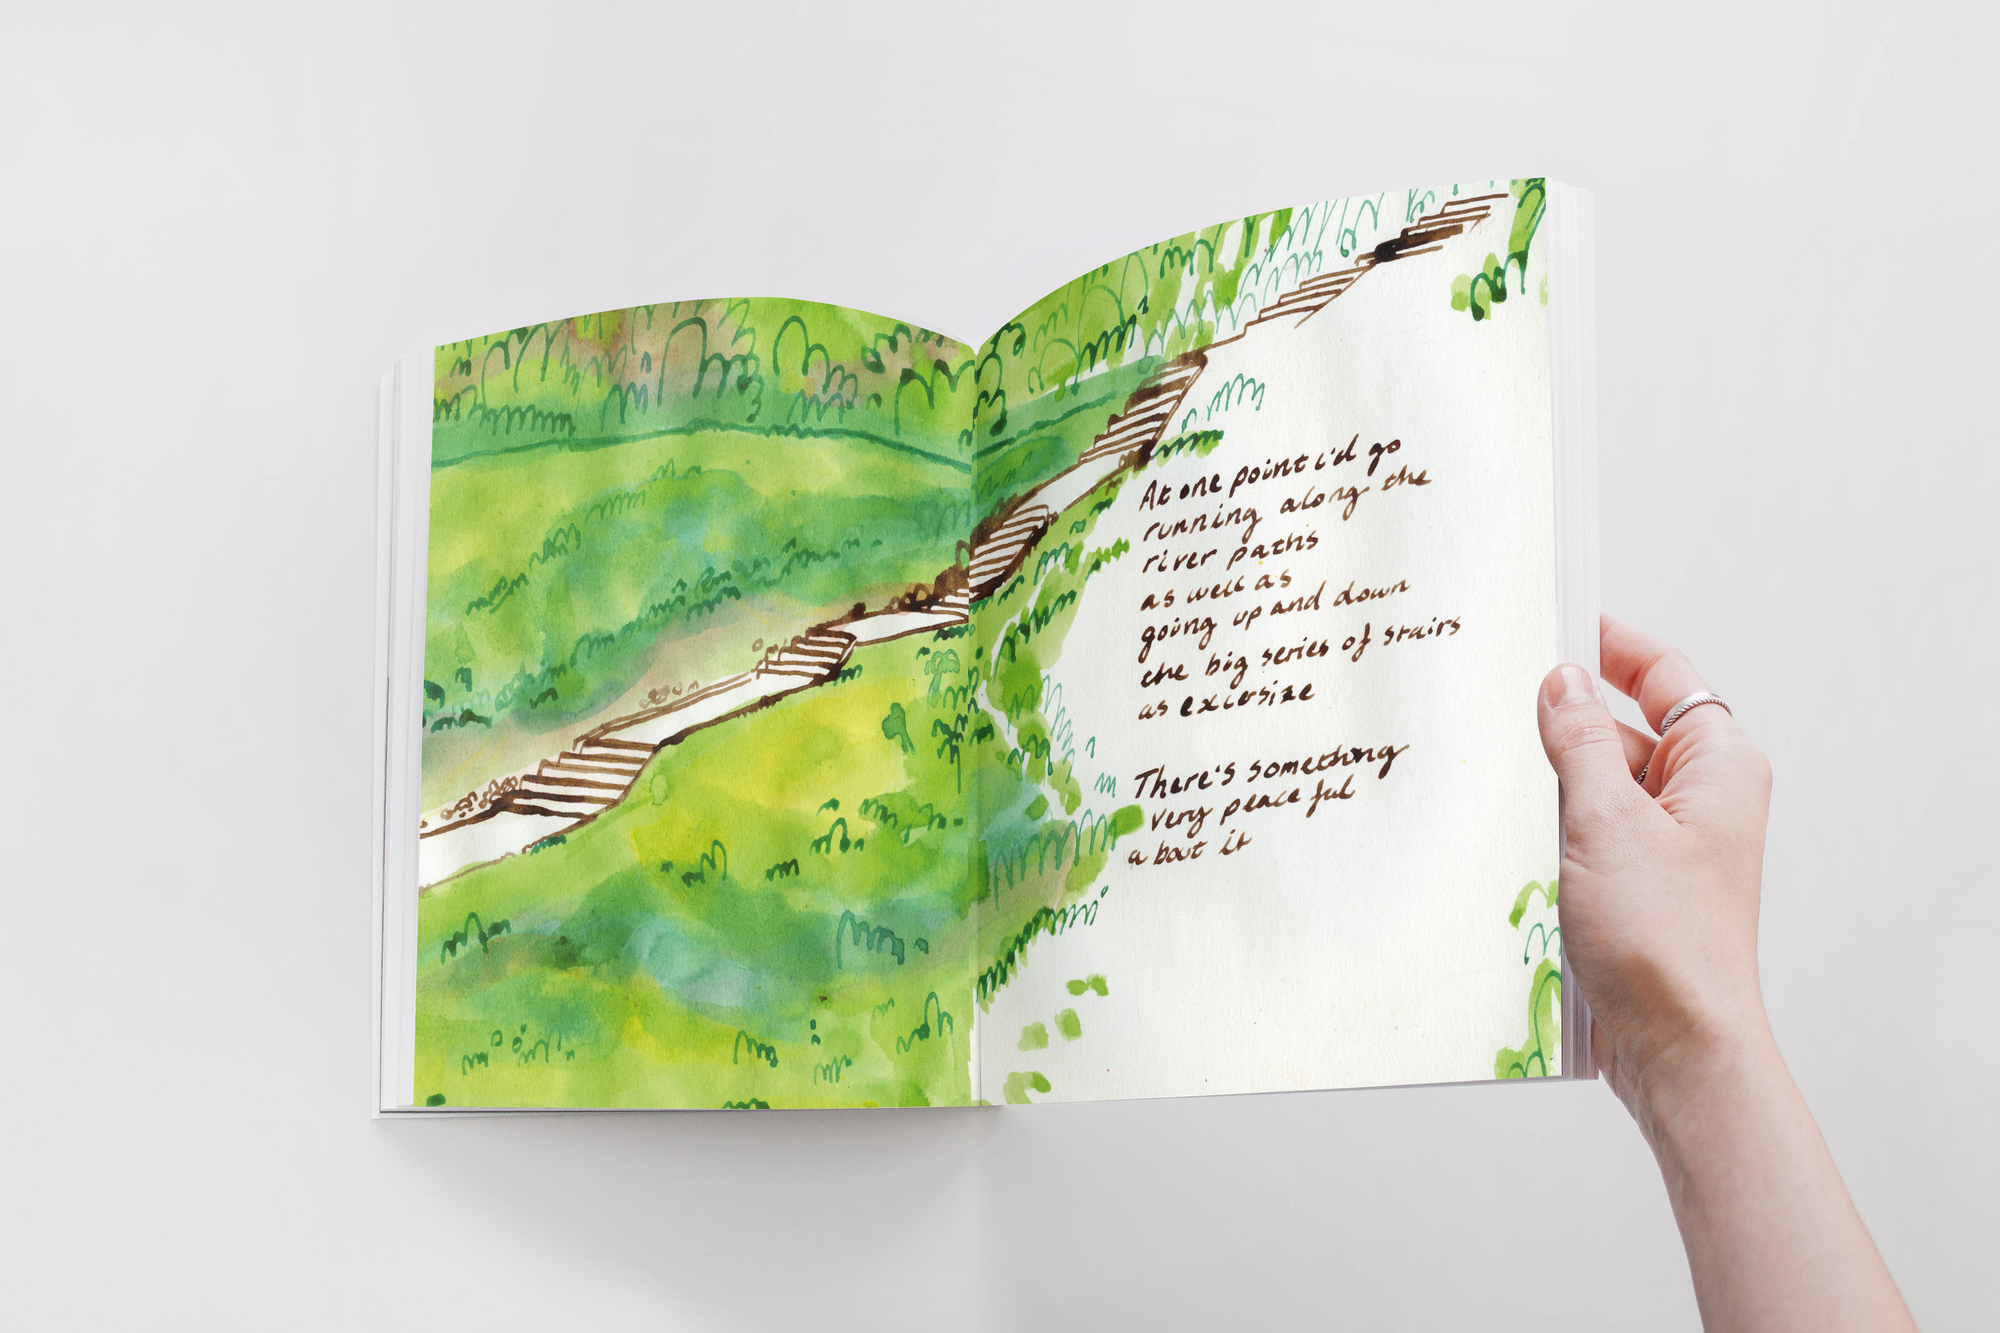 At one point i'd go
running along the
river paths
as well as
going up and down
the big series of stairs
as excersize
There's something
very peaceful
about it